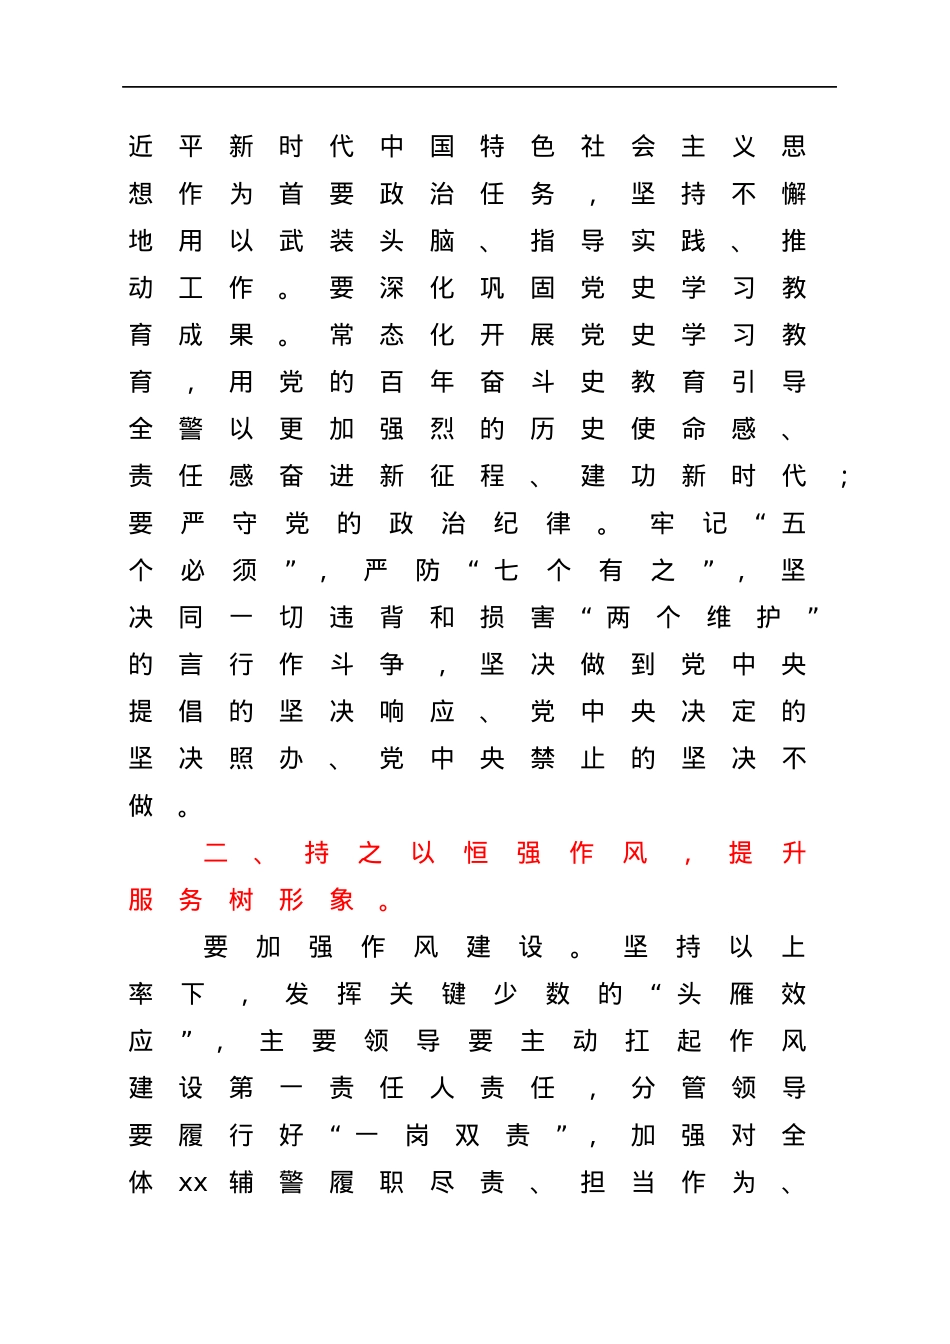 近平新时代中国特色社会主义思
想作为首要政治任务，坚持不懈
地用以武装头脑、指导实践、推
动工作。要深化巩固党史学习教
育成果。常态化开展党史学习教
育，用党的百年奋斗史教育引导
全警以更加强烈的历史使命感、
责任感奋进新征程、建功新时代；
要严守党的政治纪律。牢记“五
个必须”，严防“七个有之”，坚
决同一切违背和损害“两个维护”
的言行作斗争，坚决做到党中央
提倡的坚决响应、党中央决定的
坚决照办、党中央禁止的坚决不
做。
二、持之以恒强作风，提升
服务树形象。
要加强作风建设。坚持以上
率下，发挥关键少数的“头雁效
应”，主要领导要主动扛起作风
建设第一责任人责任，分管领导
要履行好“一岗双责”，加强对全
体xx辅警履职尽责、担当作为、